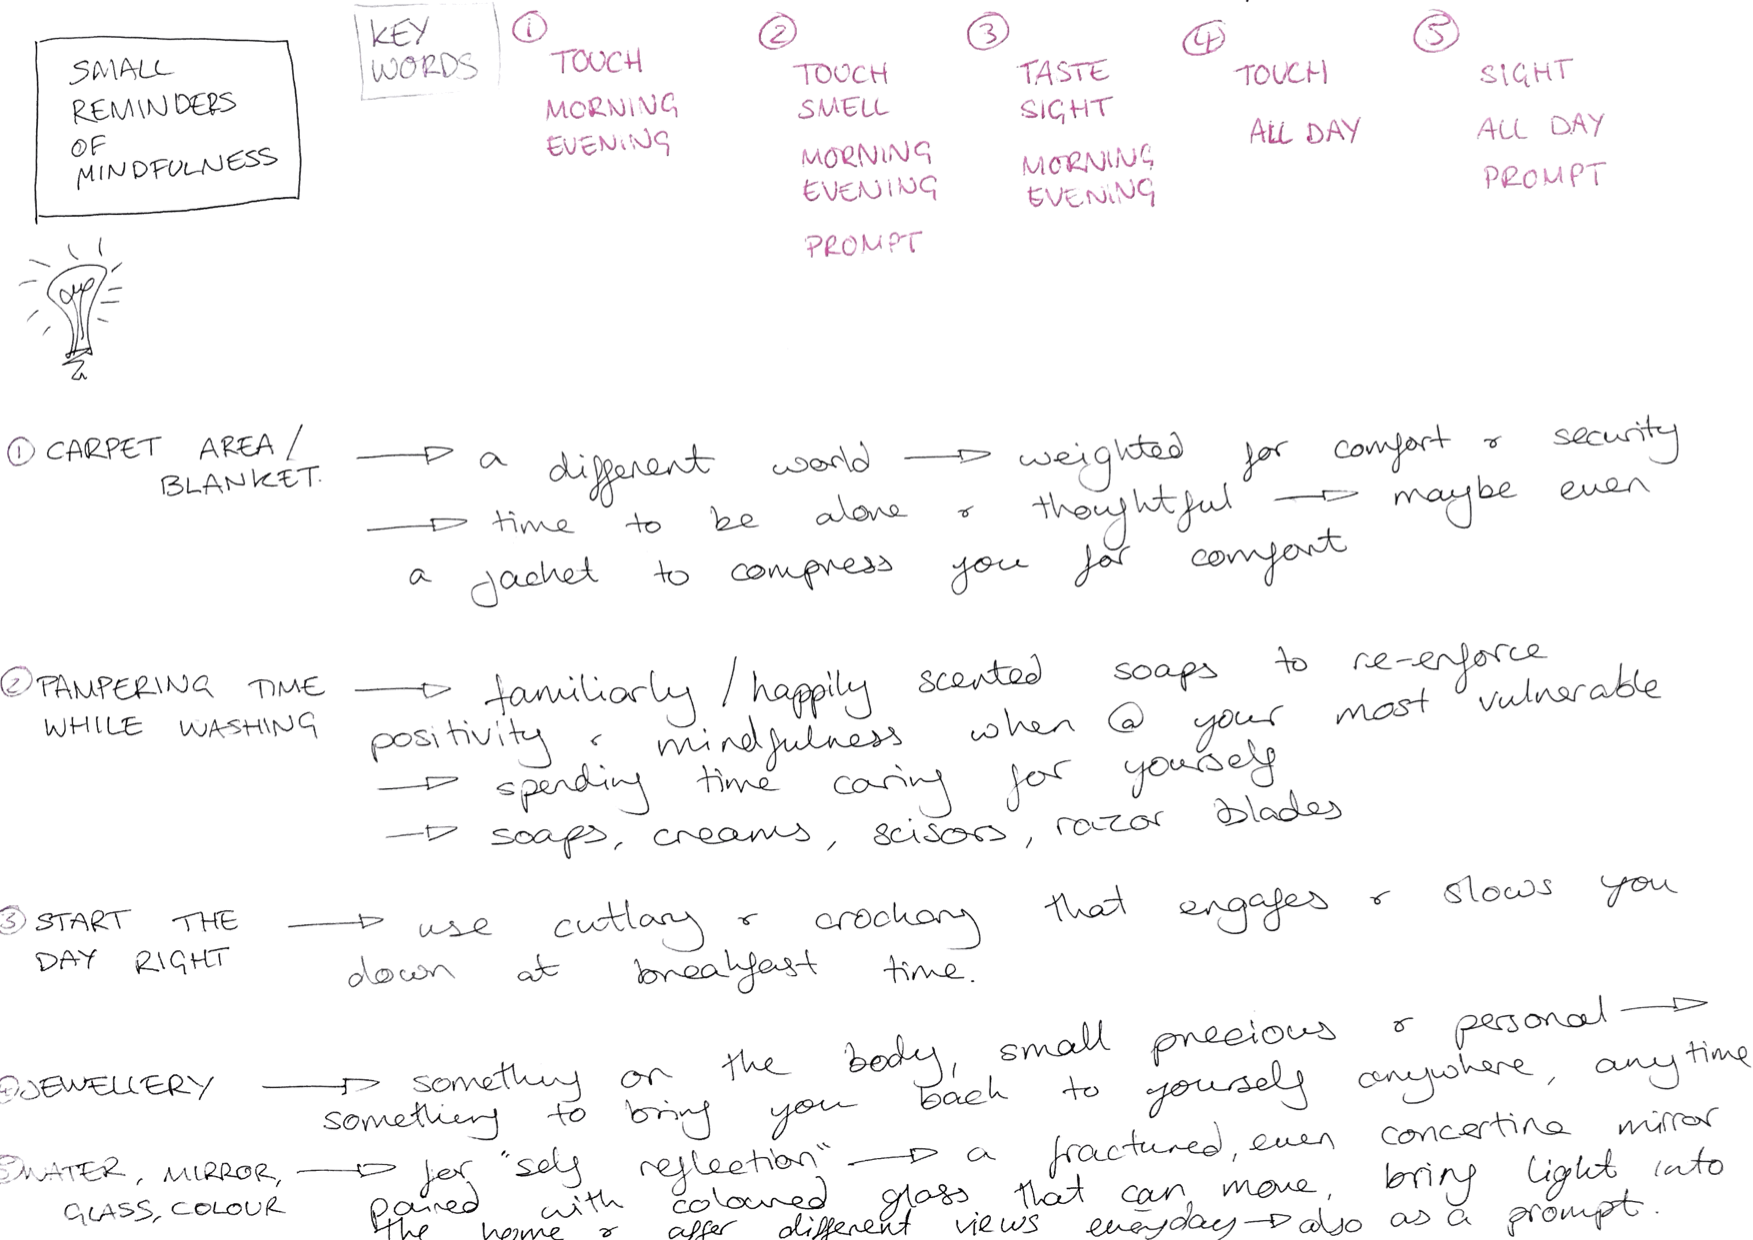 SMALL
REMINDERS
OF
MINDFULNESS
KEY
WORDS
①
TOUCH
MORNING
EVENING
②
TOUCH
SMELL
MORNING
EVENING
PROMPT
③
TASTE
SIGHT
MORNING
EVENING
④
TOUCH
ALL DAY
⑤
SIGHT
ALL DAY
PROMPT
① CARPET AREA / → a different world → weighted for comfort & security
BLANKET.
→ time to be alone & thoughtful → maybe even
a jacket to compress you for comfort
② PAMPERING TIME → familiarly / happily scented soaps to re-enforce
WHILE WASHING positivity & mindfulness when @ your most vulnerable
→ spending time caring for yourself
→ soaps, creams, scisors, razor blades
③ START THE → use cutlary & crockary that engages & slows you
DAY RIGHT down at breakfast time.
④ JEWELLERY → something on the body, small precious & personal →
something to bring you back to yourself anywhere, anytime
⑤ WATER, MIRROR, → for "self reflection" → a fractured, even concertina mirror
GLASS, COLOUR paired with coloured glass that can move, bring light into
the home & offer different views everyday → also as a prompt.